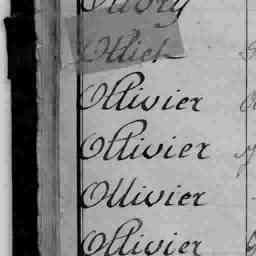 Olliet
Ollivier
Ollivier
Ollivier
Ollivier